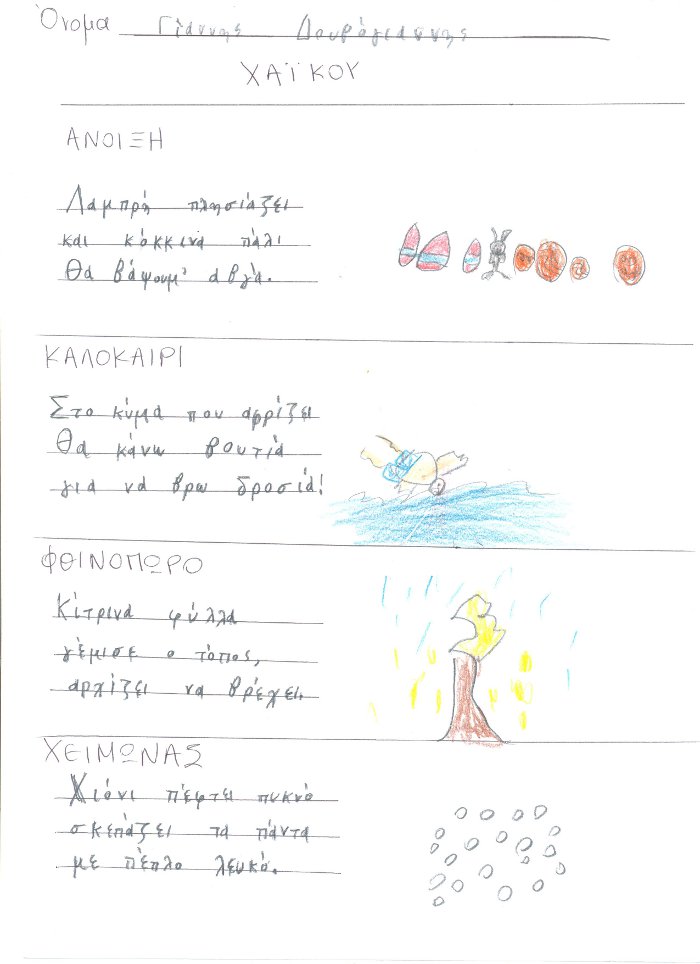 Όνομα Γιάννης Δουρόγιαννης
ΧΑΪΚΟΥ
ΑΝΟΙΞΗ
Λαμπρή πλησιάζει
και κόκκινα πάλι
θα βάψουμ' αβγά.
ΚΑΛΟΚΑΙΡΙ
Στο κύμα που αφρίζει
Θα κάνω βουτιά
για να βρω δροσιά!
ΦΘΙΝΟΠΩΡΟ
Κίτρινα φύλλα
γέμισε ο τόπος,
αρχίζει να βρέχει.
ΧΕΙΜΩΝΑΣ
Χιόνι πέφτει πυκνό
σκεπάζει τα πάντα
με πέπλο λευκό.